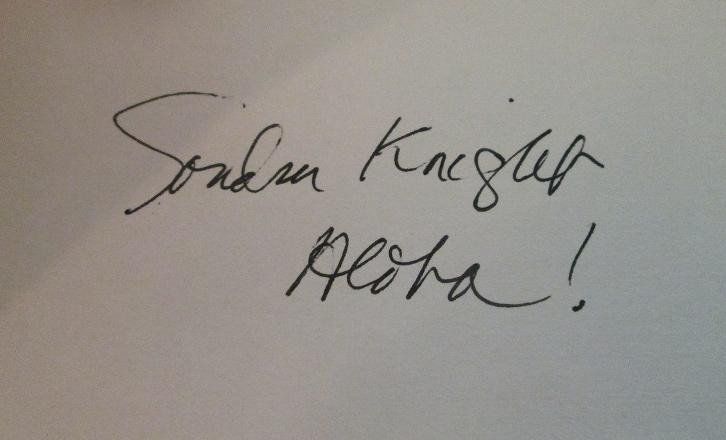 Sandra Knight
Aloha!